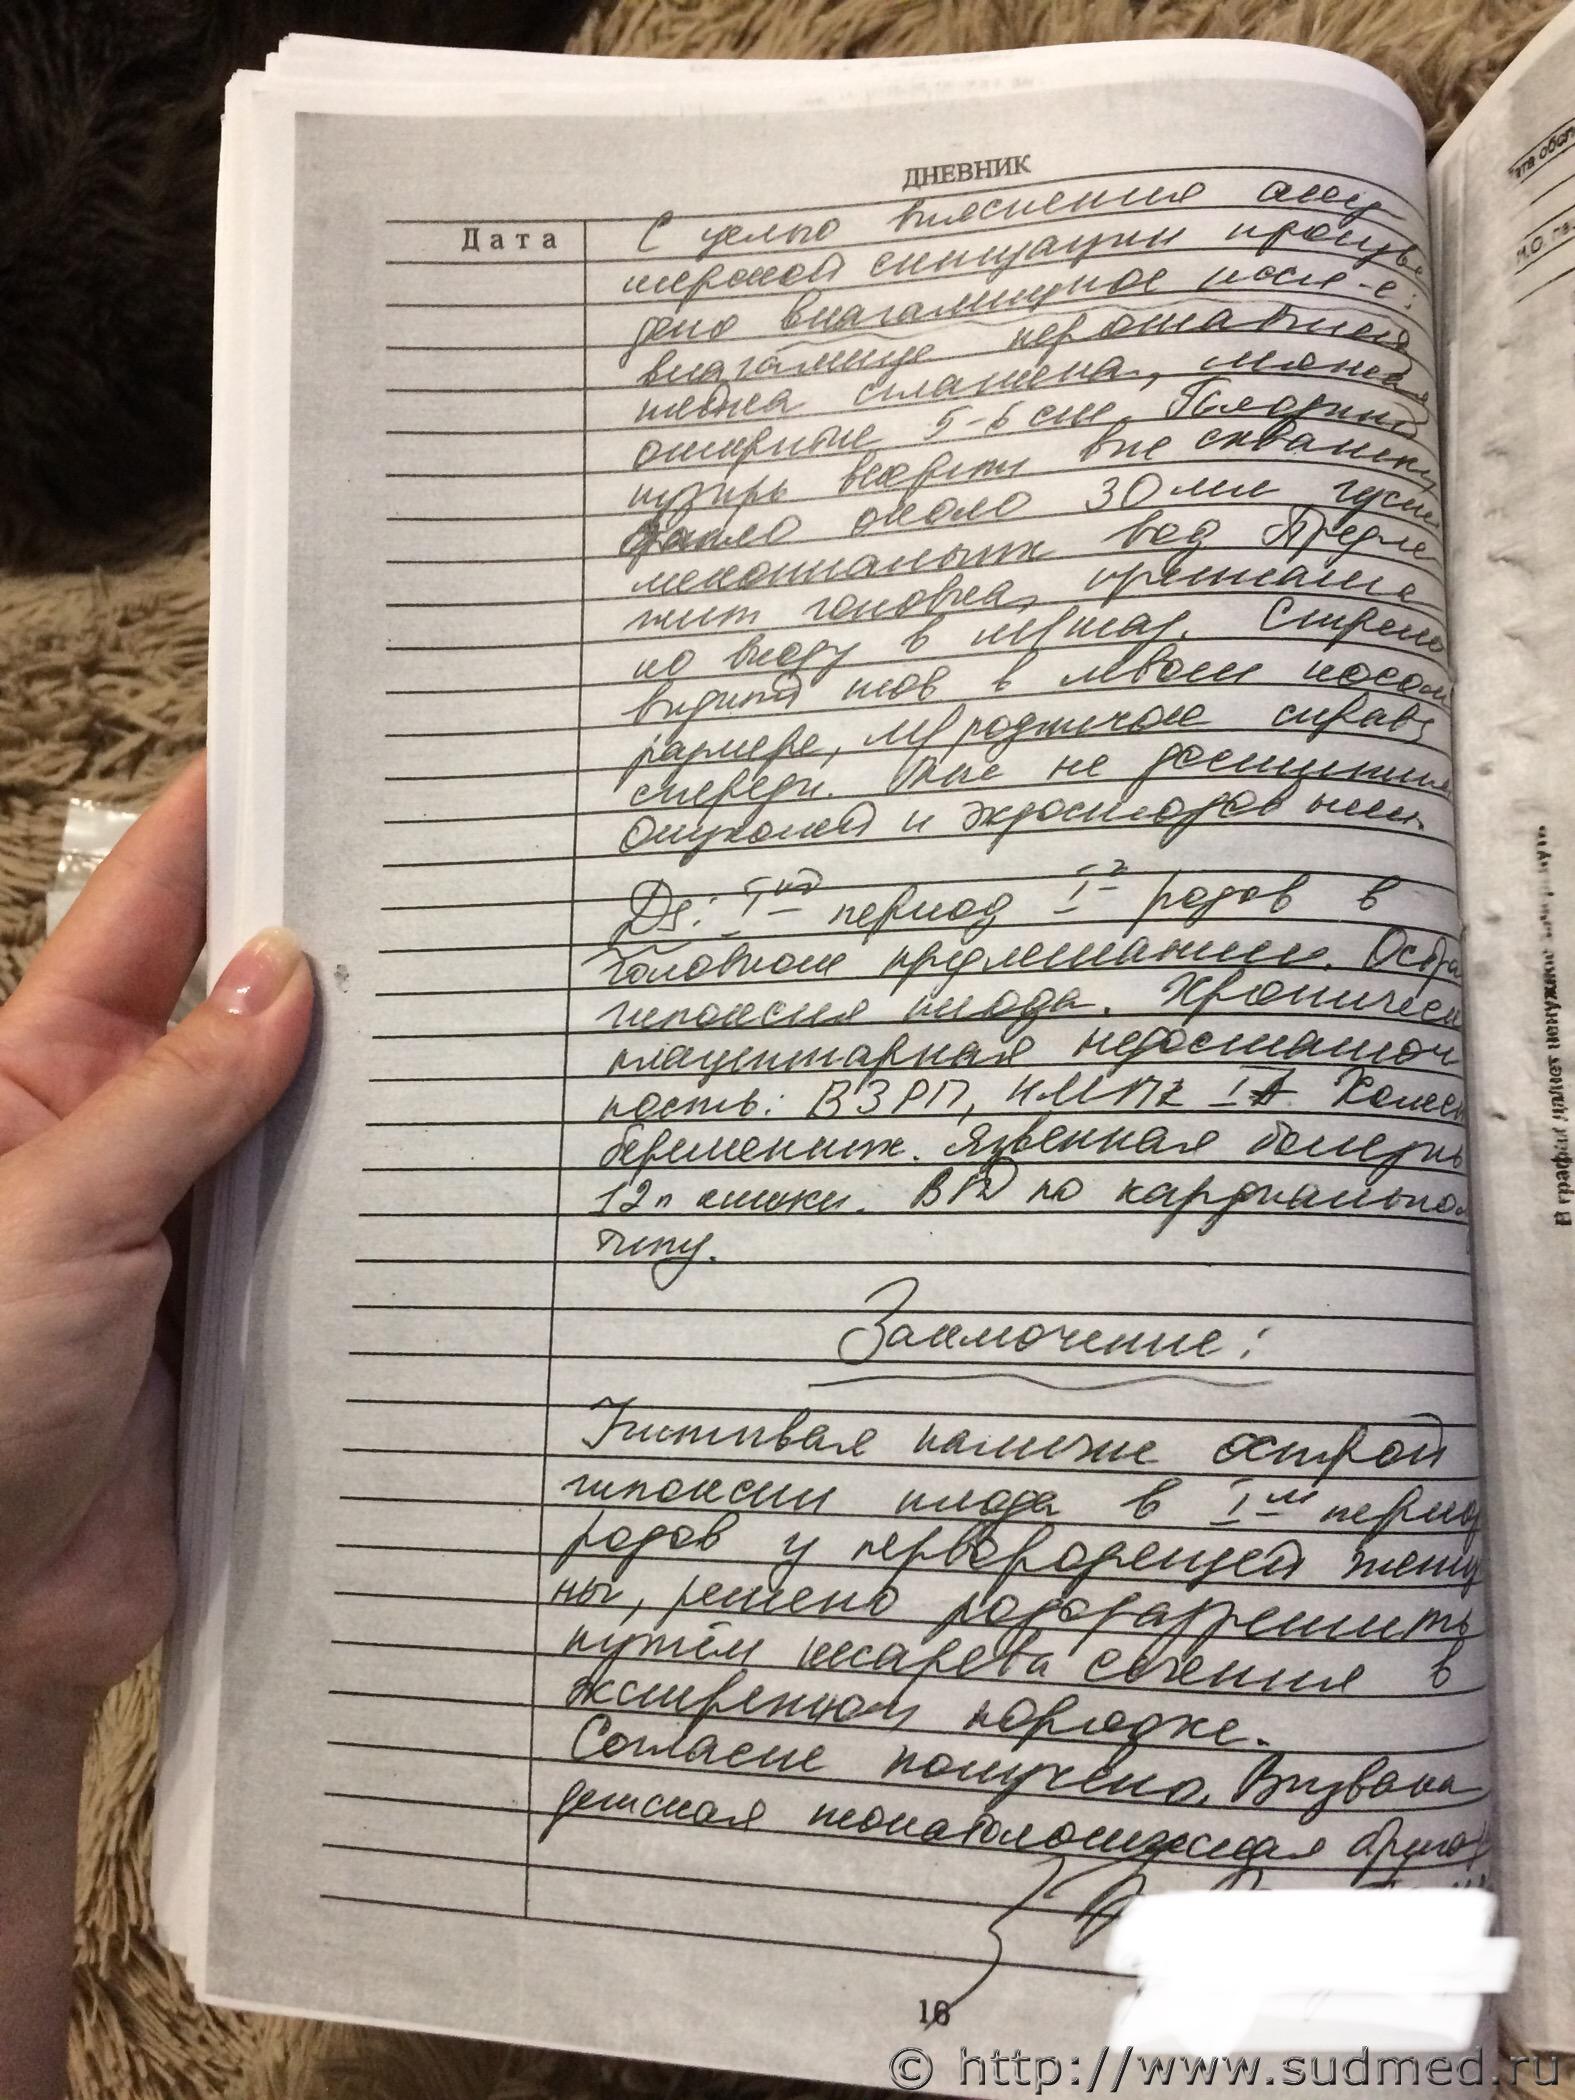 ДНЕВНИК
Дата
С целью выяснения акуш
шерской ситуации произве
дено влагалищное иссл-е:
влагалище нерожавшей
шейка сглажена,
открытие 5-6 см. Плодный
пузырь вскрыт вне схватки
около 30 мл густ
мекониальных вод Предле
жит головка, прижата
ко входу в м/таз. Стрело
видный шов в левом косом
размере, м/родничок справа
спереди. Мыс не достижим
Опухолей и экзостозов нет.
Ds: Iый период Iх родов в
головном предлежании. Остра
гипоксия плода. Хроническ
плацентарная недостаточ
ность: ВЗРП, НМПК IА Холест
беременных. Язвенная болезнь
12п кишки. ВСД по кардиально
типу.
Заключение:
Учитывая наличие острой
гипоксии плода в Iм период
родов у первородящей женщ
ны, решено родоразрешить
путём кесарева сечения в
экстренном порядке.
Согласие получено. Вызвана
детская бригад
16
В графах далнет ненужное
та обсл
И.О. па
© http://www.sudmed.ru